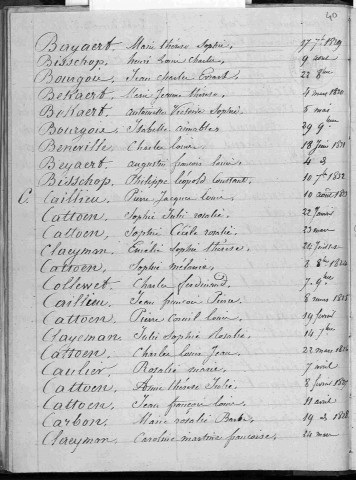 40
Bayaert. Marie thérèse Sophie. 27 7.bre 1819
Bisschop. henri Louis Charles. 9 aout
Bourgois. Jean Charles Evrard. 22 8bre
BeKaert. Marie Jeanne thérèse. 4 mars 1820
BeKaert. antoinette Victoire Sophie. 5 mai
Bourgois. Isabelle aimable. 29 9bre
Benoville. Charles louis. 18 Juin 1831
Beyaert. augustin françois louis. 4
Bisschop. Philippe léopold Constant. 10 7bre 1832
C. Caillieu. Pierre Jacques Louis. 10 août
Cattoen. Sophie Julie rosalie. 22 Janvier
Cattoen. Sophie Cécile rosalie. 23 mars
Claeyman. Eulalie Sophie thérèse. 24
Cattoen. Sophie mélanie. 8 8bre 1824
Collewet. Charles ferdinand. 7. 9bre
Caillieu. Jean françois Pierre. 8 mars 1825
Cattoen. Pierre Cornil louis. 19 février
Clayeman. Julie Sophie Rosalie. 14 7bre
Cattoen. Charles louis Jean. 22 mars 1826
Caulier. Rosalie marie. 7 avril
Cattoen. Anne thérèse Julie. 8 février 1827
Cattoen. Jean françois louis. 11 avril
Carbon. Marie rosalie Barbe. 19 1828
Claeyman. Caroline martine françoise. 24 mars